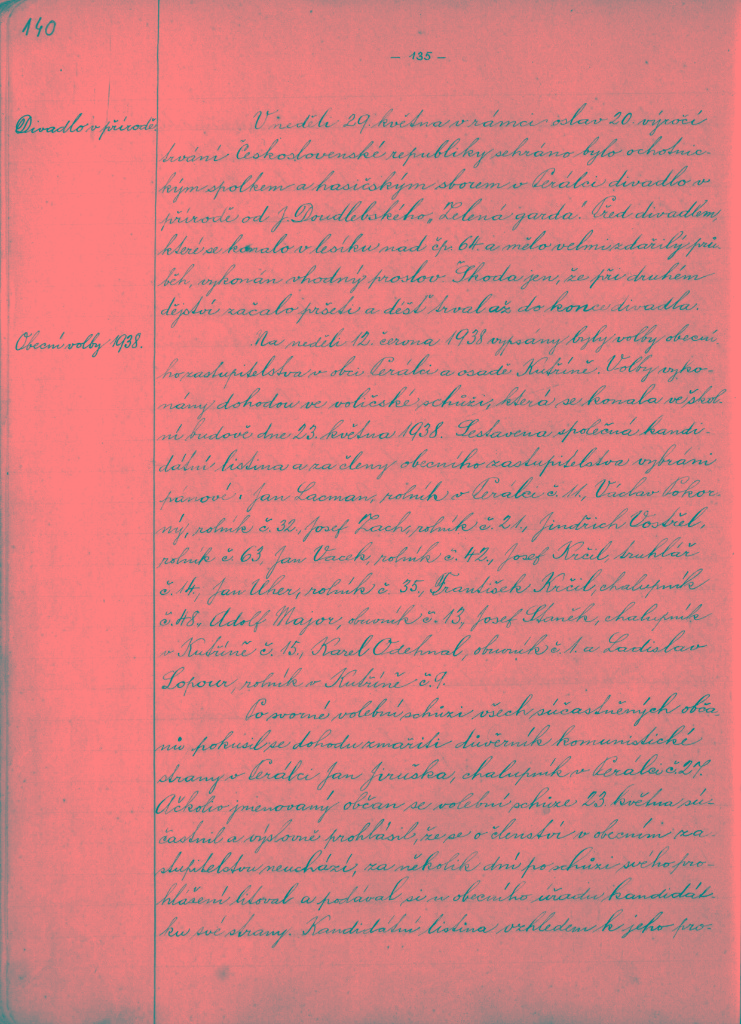 140
— 135 —
Divadlo v přírodě.
V neděli 29. května v rámci oslav 20. výročí
trvání Československé republiky sehráno bylo ochotnic-
kým spolkem a hasičským sborem v Perálci divadlo v
přírodě od J. Doudlebského „Zelená garda". Před divadlem,
které se konalo v lesíku nad čp. 64 a mělo velmi zdařilý prů-
běh, vykonán vhodný proslov. Škoda jen, že při druhém
dějství začalo pršeti a déšť trval až do konce divadla.
Obecní volby 1938.
Na neděli 12. června 1938 vypsány byly volby obecní
ho zastupitelstva v obci Perálci a osadě Kutříně. Volby vyko-
nány dohodou ve voličské schůzi, která se konala ve škol-
ní budově dne 23. května 1938. Sestavena společná kandi-
dátní listina a za členy obecního zastupitelstva vybráni
pánové: Jan Lacman, rolník v Perálci č. 11., Václav Pokor-
ný, rolník č. 32., Josef Zach, rolník č. 21., Jindřich Vostřel,
rolník č. 63, Jan Vacek, rolník č. 42., Josef Krčil, truhlář
č. 14, Jan Uher, rolník č. 35, František Krčil, chalupník
č. 48. Adolf Major, obuvník č. 13, Josef Staněk, chalupník
v Kutříně č. 15., Karel Odehnal, obuvník č. 1. a Ladislav
Lopour, rolník v Kutříně č. 9.
Po svorné volební schůzi všech súčastněných obča-
nů pokusil se dohodu zmařiti důvěrník komunistické
strany v Perálci Jan Jiruška, chalupník v Perálci č. 27.
Ačkoliv jmenovaný občan se volební schůze 23. května sú-
častnil a výslovně prohlásil, že se o členství v obecním za-
stupitelstvu neuchází, za několik dní po schůzi svého pro-
hlášení litoval a podával si u obecního úřadu kandidát-
ku své strany. Kandidátní listina vzhledem k jeho pro-